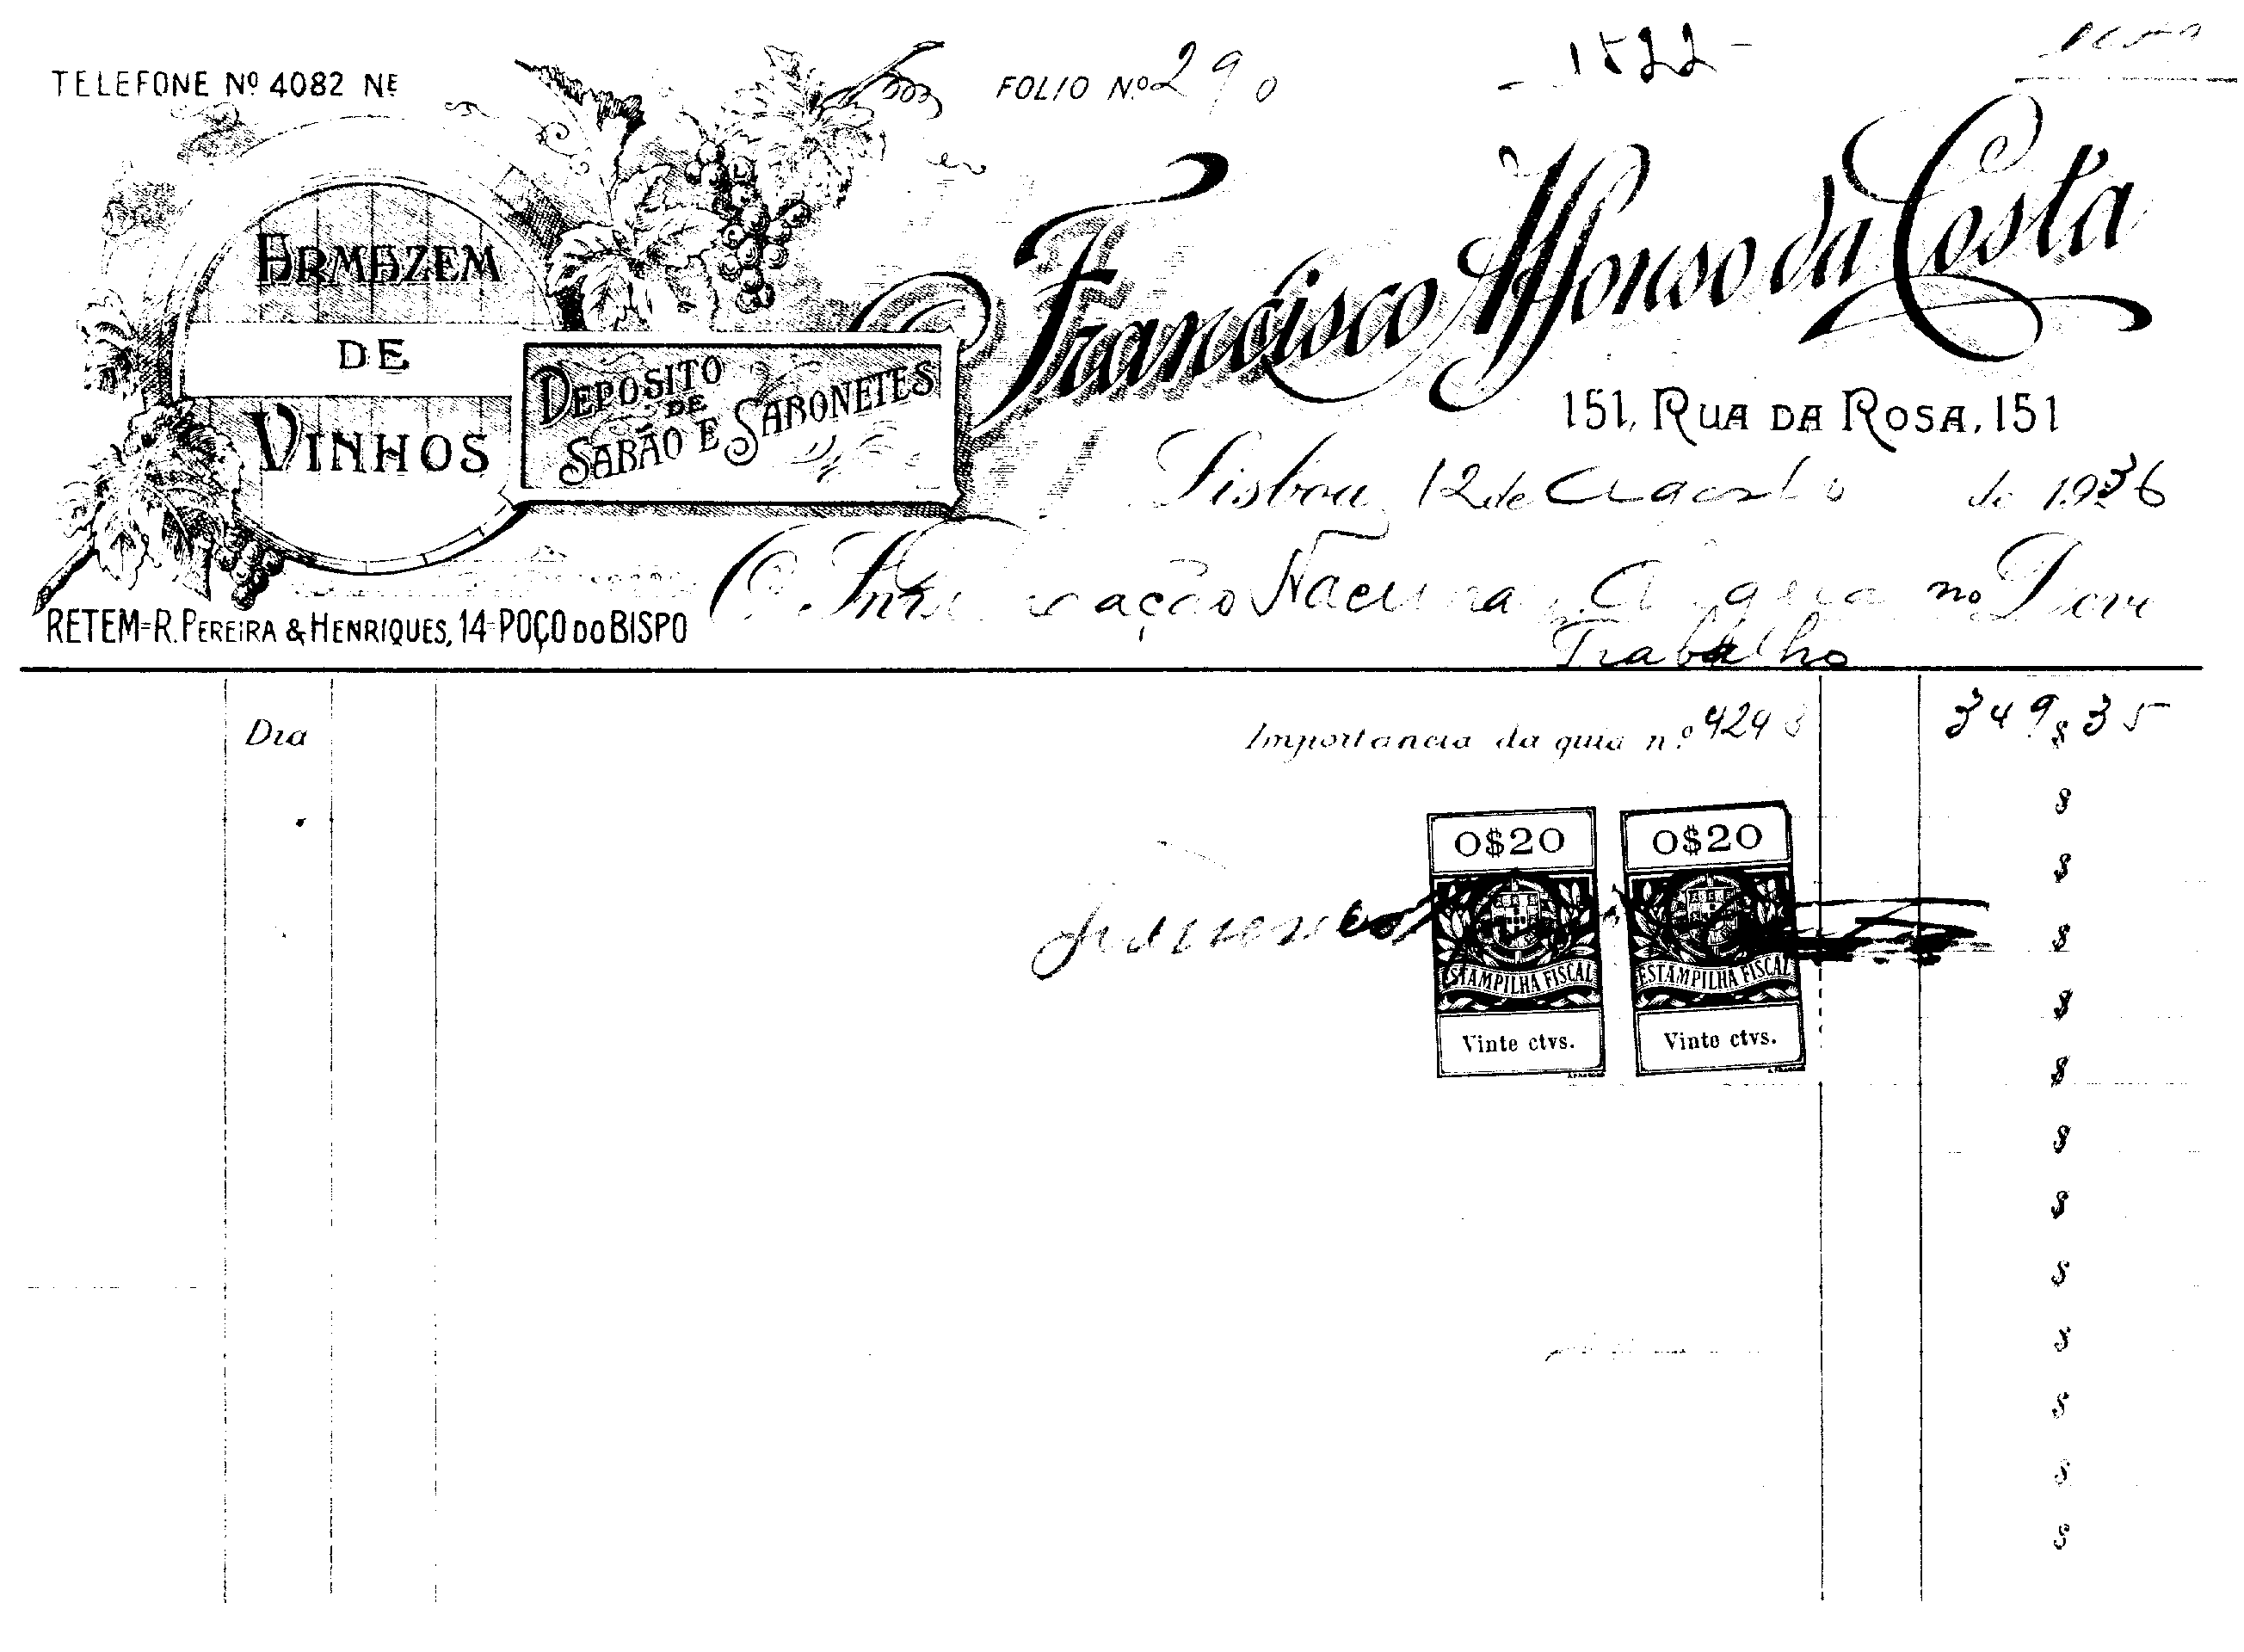 TELEFONE Nº 4082 NE
FOLIO N.º 290
- 1522 -
ARMAZEM
DE
VINHOS
DEPOSITO
DE
SABÃO E SABONETES
Francisco Affonso da Costa
151, RUA DA ROSA, 151
Lisboa, 12 de Agosto de 1936
O Snr. Nacional no Deve
Trabalho
RETEM=R. PEREIRA & HENRIQUES, 14-POÇO DO BISPO
Dia Importancia da guia n.º 4293 349$35
$
0$20 0$20
$
Francisco
$
ESTAMPILHA FISCAL ESTAMPILHA FISCAL
$
Vinte ctvs. Vinte ctvs.
$
$
$
$
$
$
$
$